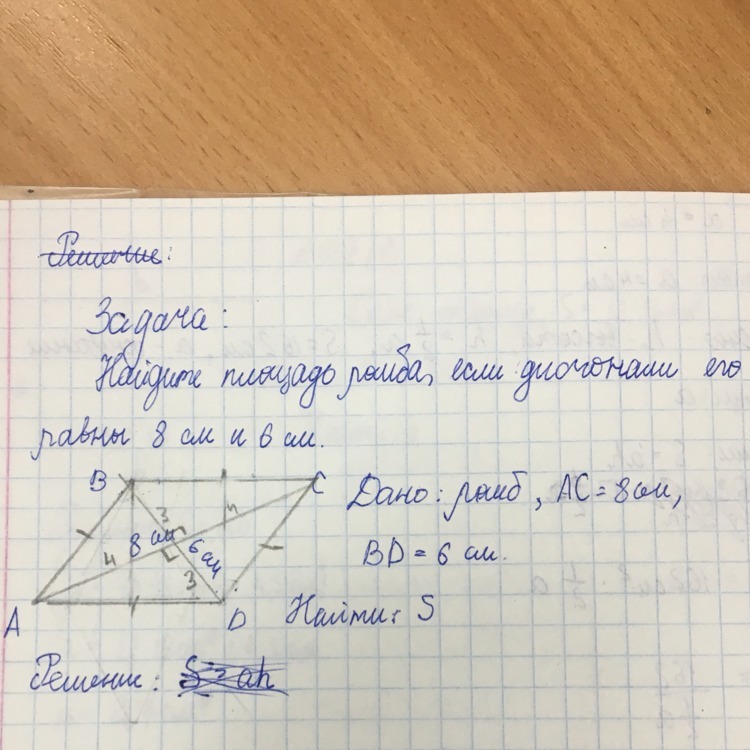 Решение:
Задача:
Найдите площадь ромба, если диогонали его
равны 8 см и 6 см.
B
C
Дано: ромб, AC = 8 см,
3
4
8 см
6 см
4
3
BD = 6 см.
A
D
Найти: S
Решение: S = ah